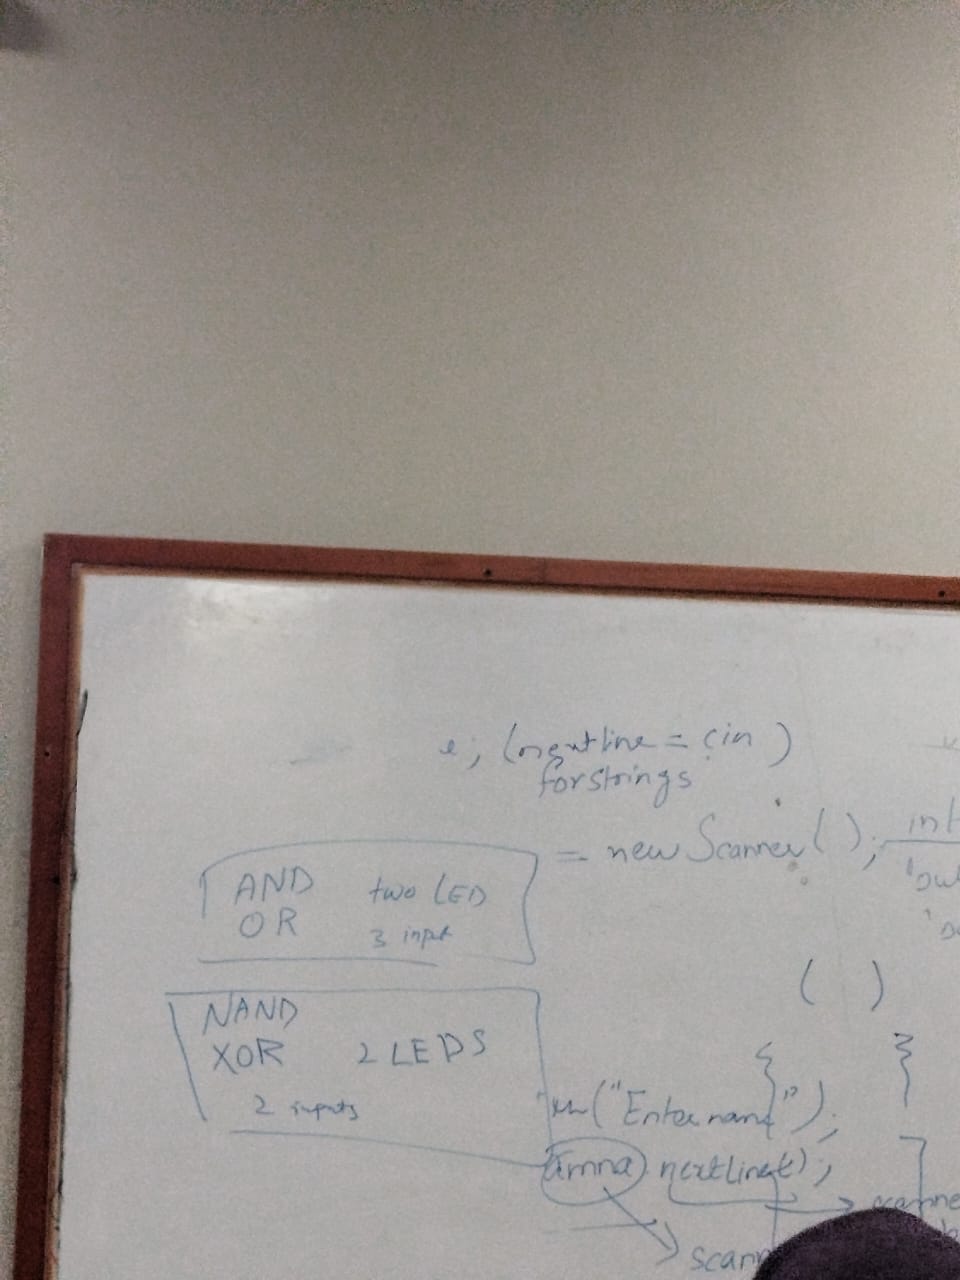 (nextline = cin)
for strings
= new Scanner(); int
AND two LED
OR 3 input
( )
NAND
XOR 2 LEDS
{ }
2 inputs
("Enter name");
amna nextLine();
scann